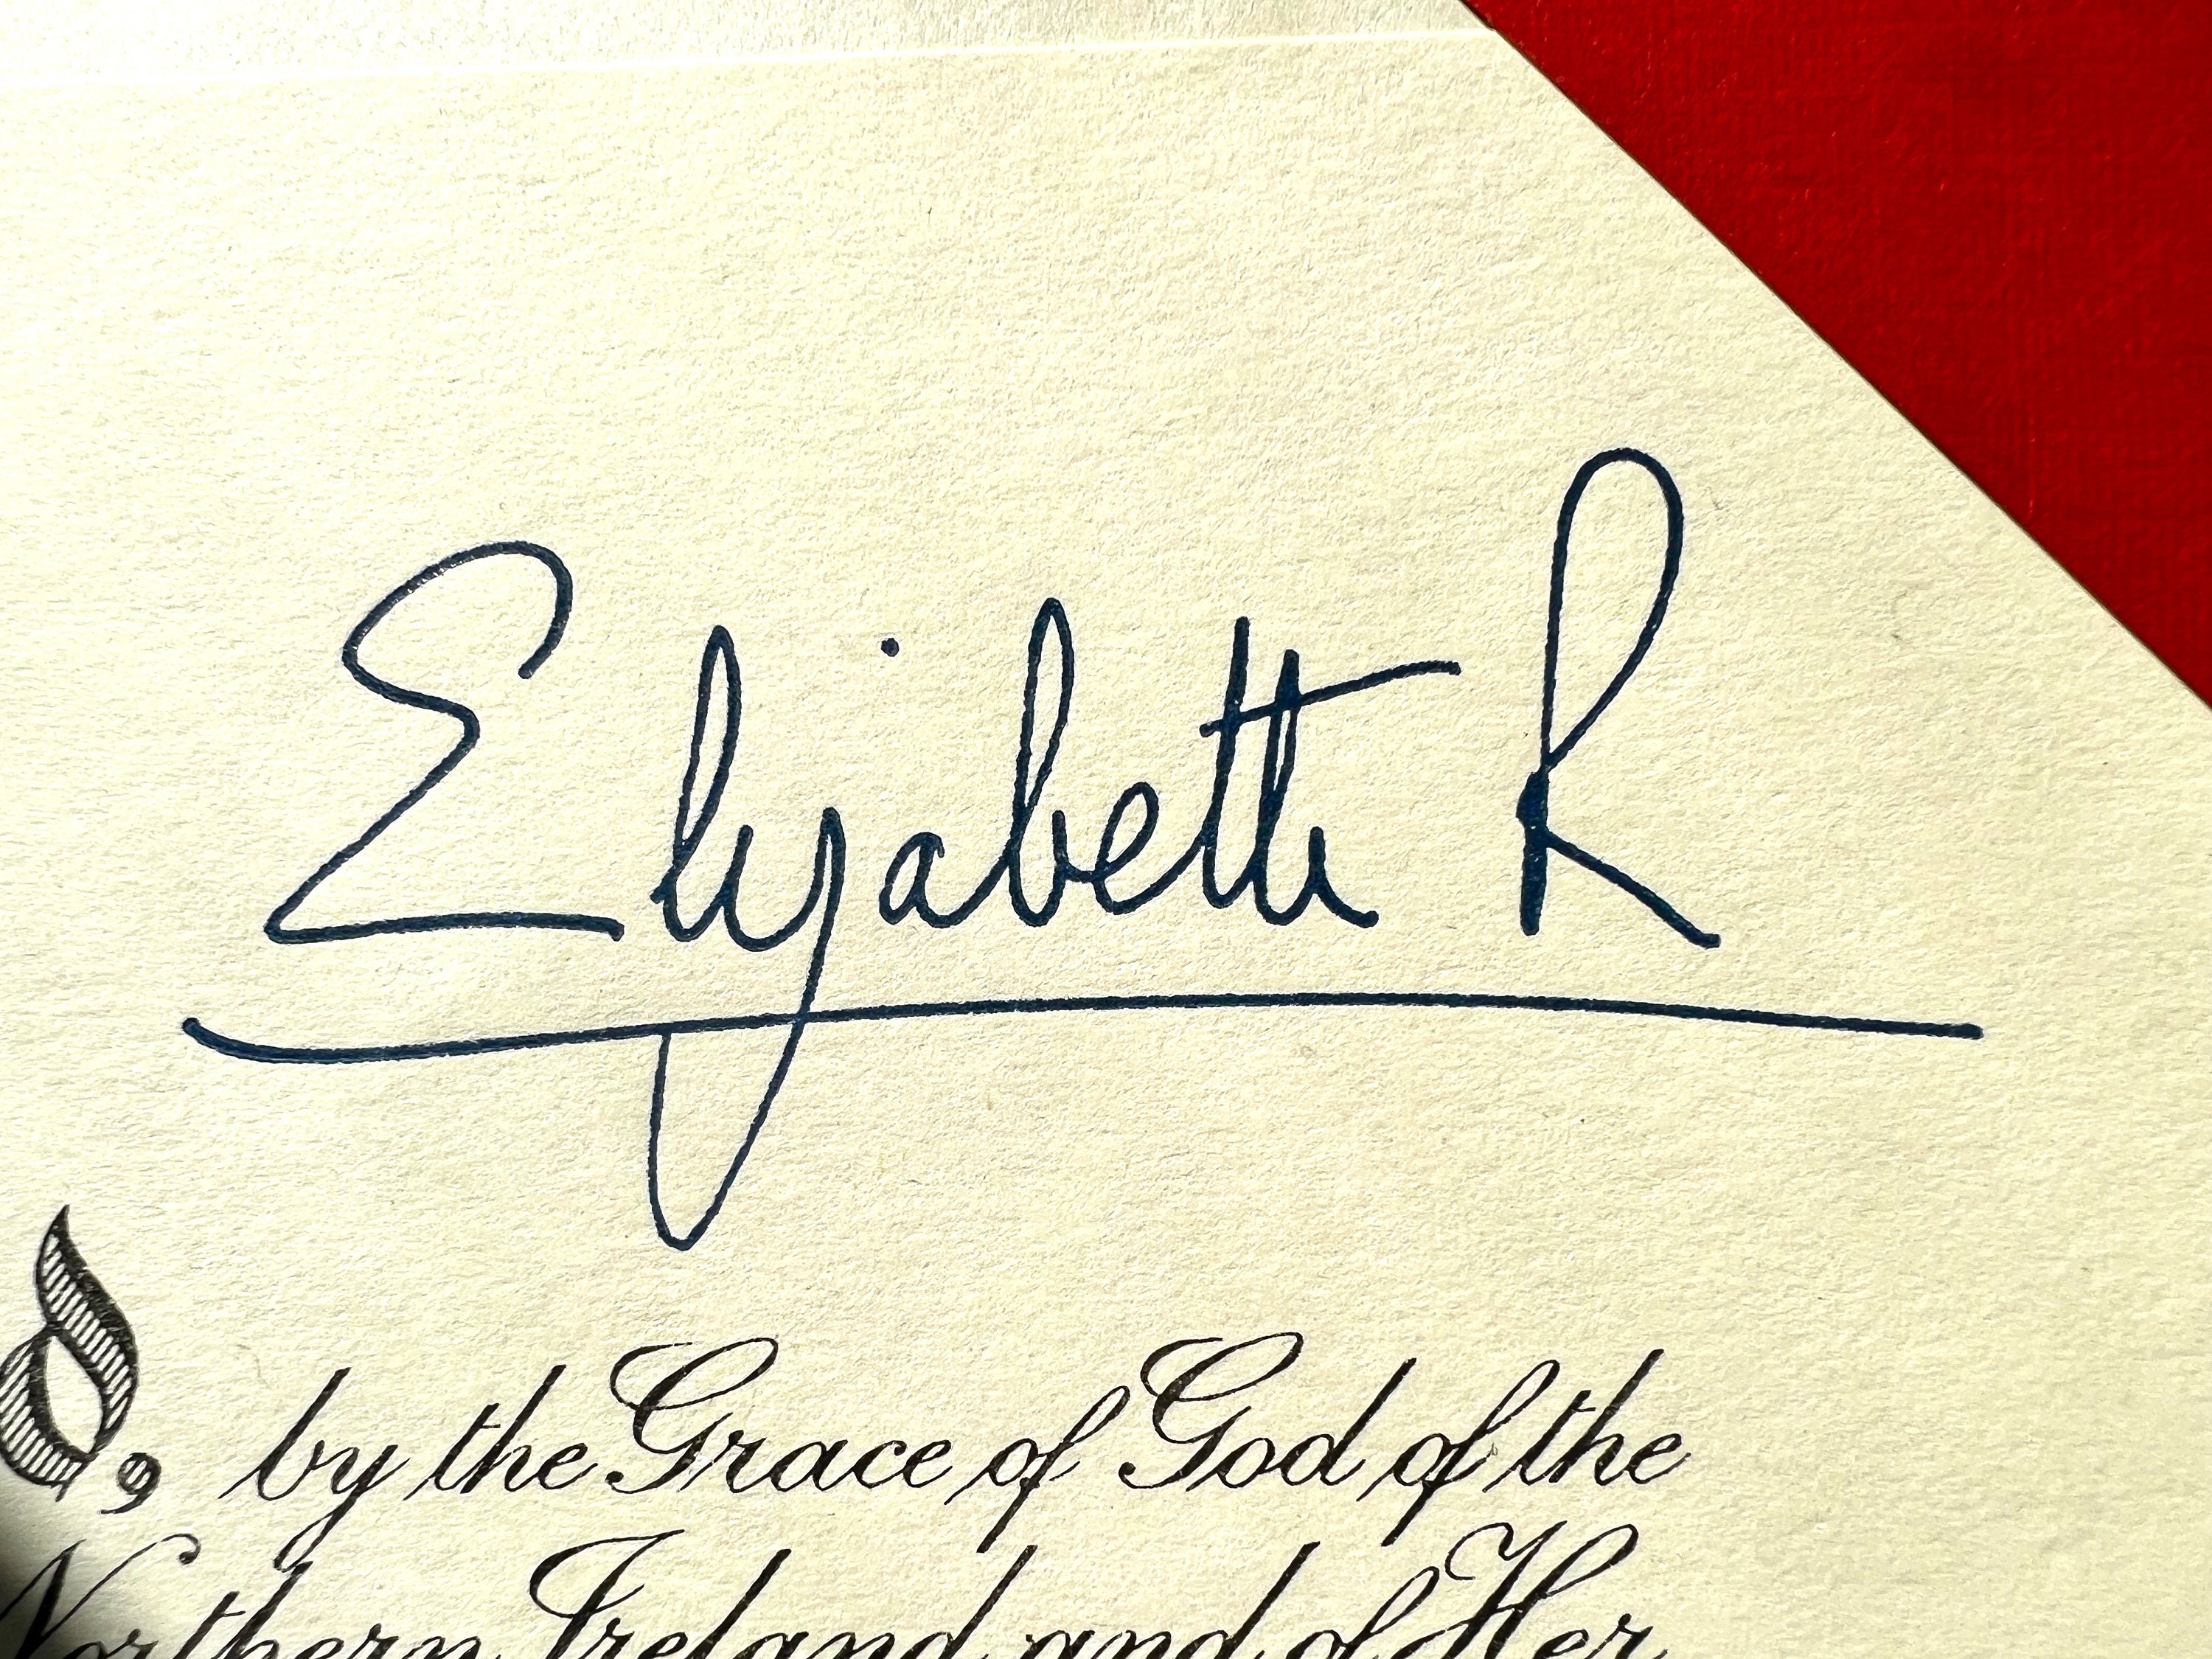 Elizabeth R
, by the Grace of God of the
Northern Ireland and of Her